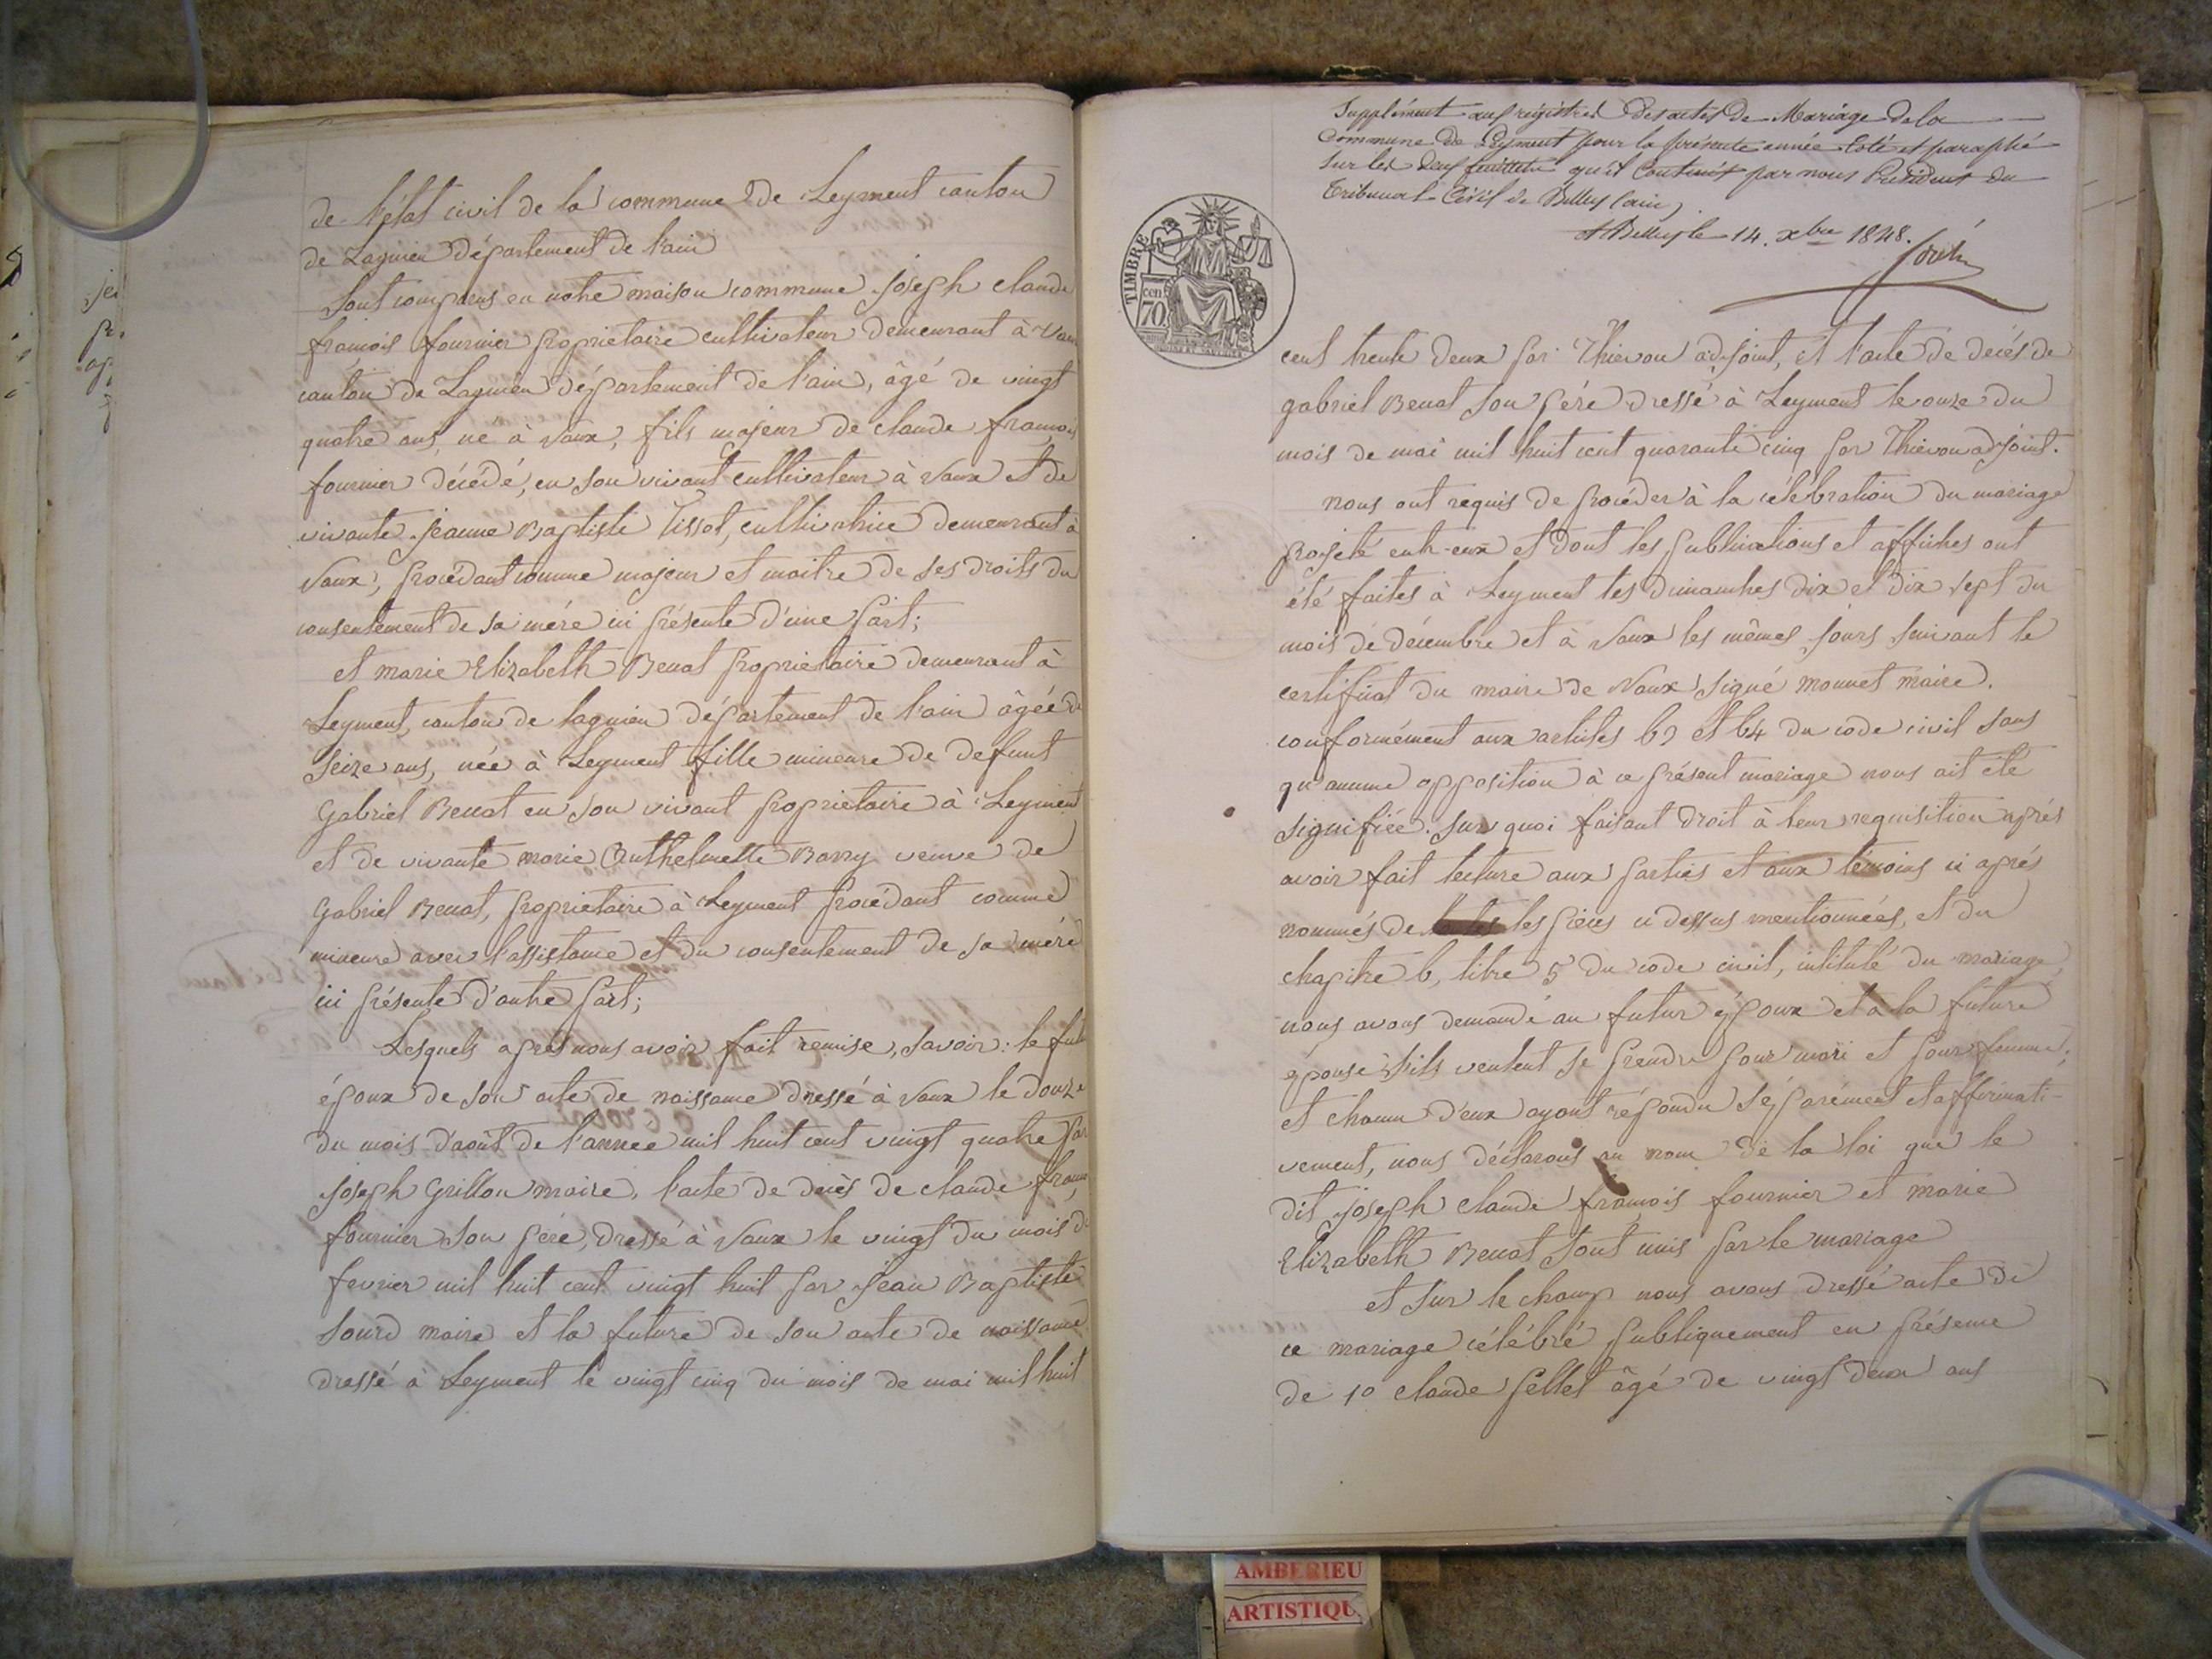 de l'état civil de la commune de Leyment canton
de Lagnieu département de l'ain
Sont comparus en notre maison commune joseph claude
francois fournier propriétaire cultivateur demeurant à Vaux
canton de Lagnieu département de l'ain, âgé de vingt
quatre ans, né à Vaux, fils majeur de claude francois
fournier décédé, en son vivant cultivateur à Vaux et de
vivante jeanne Baptiste Tissot, cultivatrice demeurant à
Vaux, procédant comme majeur et maitre de ses droits du
consentement de sa mére ici présente d'une part;
et marie Elizabeth Benat propriétaire demeurant à
Leyment, canton de lagnieu département de l'ain âgée de
seize ans, née à Leyment fille mineure de defunt
Gabriel Benat en son vivant propriétaire à Leyment
et de vivante marie Anthelmette Barry veuve de
Gabriel Benat, propriétaire à Leyment procédant comme
mineure avec l'assistance et du consentement de sa mére
ici présente d'autre part;
Lesquels apres nous avoir fait remise, savoir: le futur
époux de son acte de naissance dressé à Vaux le douze
du mois d'août de l'annee mil huit cent vingt quatre par
joseph Grillon maire, l'acte de décès de claude francois
fournier son pére, dressé à Vaux le vingt du mois de
fevrier mil huit cent vingt huit par jean Baptiste
Sourd maire et la future de son acte de naissance
dressé à Leyment le vingt cinq du mois de mai mil huit
Supplément aux régistres des actes de Mariage de la
Commune de Leyment pour la présente année Coté et paraphé
Sur les deux feuillets qu'il Contient par nous Président du
Tribunal Civil de Belley (ain)
A Belley le 14. xbre 1848.
TIMBRE
70 cen
cent trente deux par Thievon adjoint, et l'acte de décés de
gabriel Benat son pére dressé à Leyment le onze du
mois de mai mil huit cent quarante cinq par Thievon adjoint.
nous ont requis de procéder à la célébration du mariage
projeté entr-eux et dont les publications et affiches ont
été faites à Leyment les dimanches dix et dix sept du
mois de décembre et à Vaux les mêmes jours suivant le
certificat du maire de Vaux signé monnet maire.
conformément aux articles 63 et 64 du code civil sans
qu'aucune opposition à ce présent mariage nous ait été
signifiée. sur quoi faisant droit à leur requisition aprés
avoir fait lecture aux parties et aux témoins ci aprés
nommés de les piéces ci dessus mentionnées, et du
chapitre 6, titre 5 du code civil, intitulé du mariage,
nous avons demandé au futur époux et à la future
épouse s'ils veulent se prendre pour mari et pour femme;
et chacun d'eux ayant répondu séparément et affirmati-
vement, nous déclarons au nom de la loi que le
dit joseph claude francois fournier et marie
Elizabeth Benat sont unis par le mariage
et sur le champ nous avons dressé acte de
ce mariage célébré publiquement en présence
de 1° claude pellet âgé de vingt deux ans
AMBERIEU
ARTISTIQU